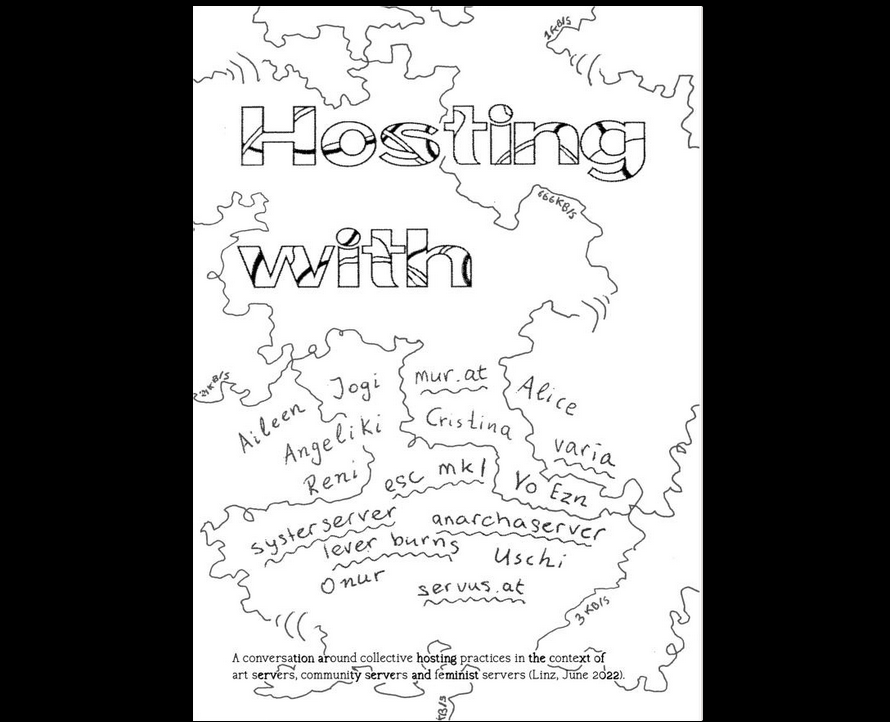 1KB/S
Hosting
666KB/S
with
Jogi
mur.at
Alice
Aileen
Cristina
Angeliki
varia
Reni
esc mkl
Yo Ezn
systerserver
anarchaserver
lever burns
Uschi
Onur
servus.at
3 KB/S
A conversation around collective hosting practices in the context of
art servers, community servers and feminist servers (Linz, June 2022).